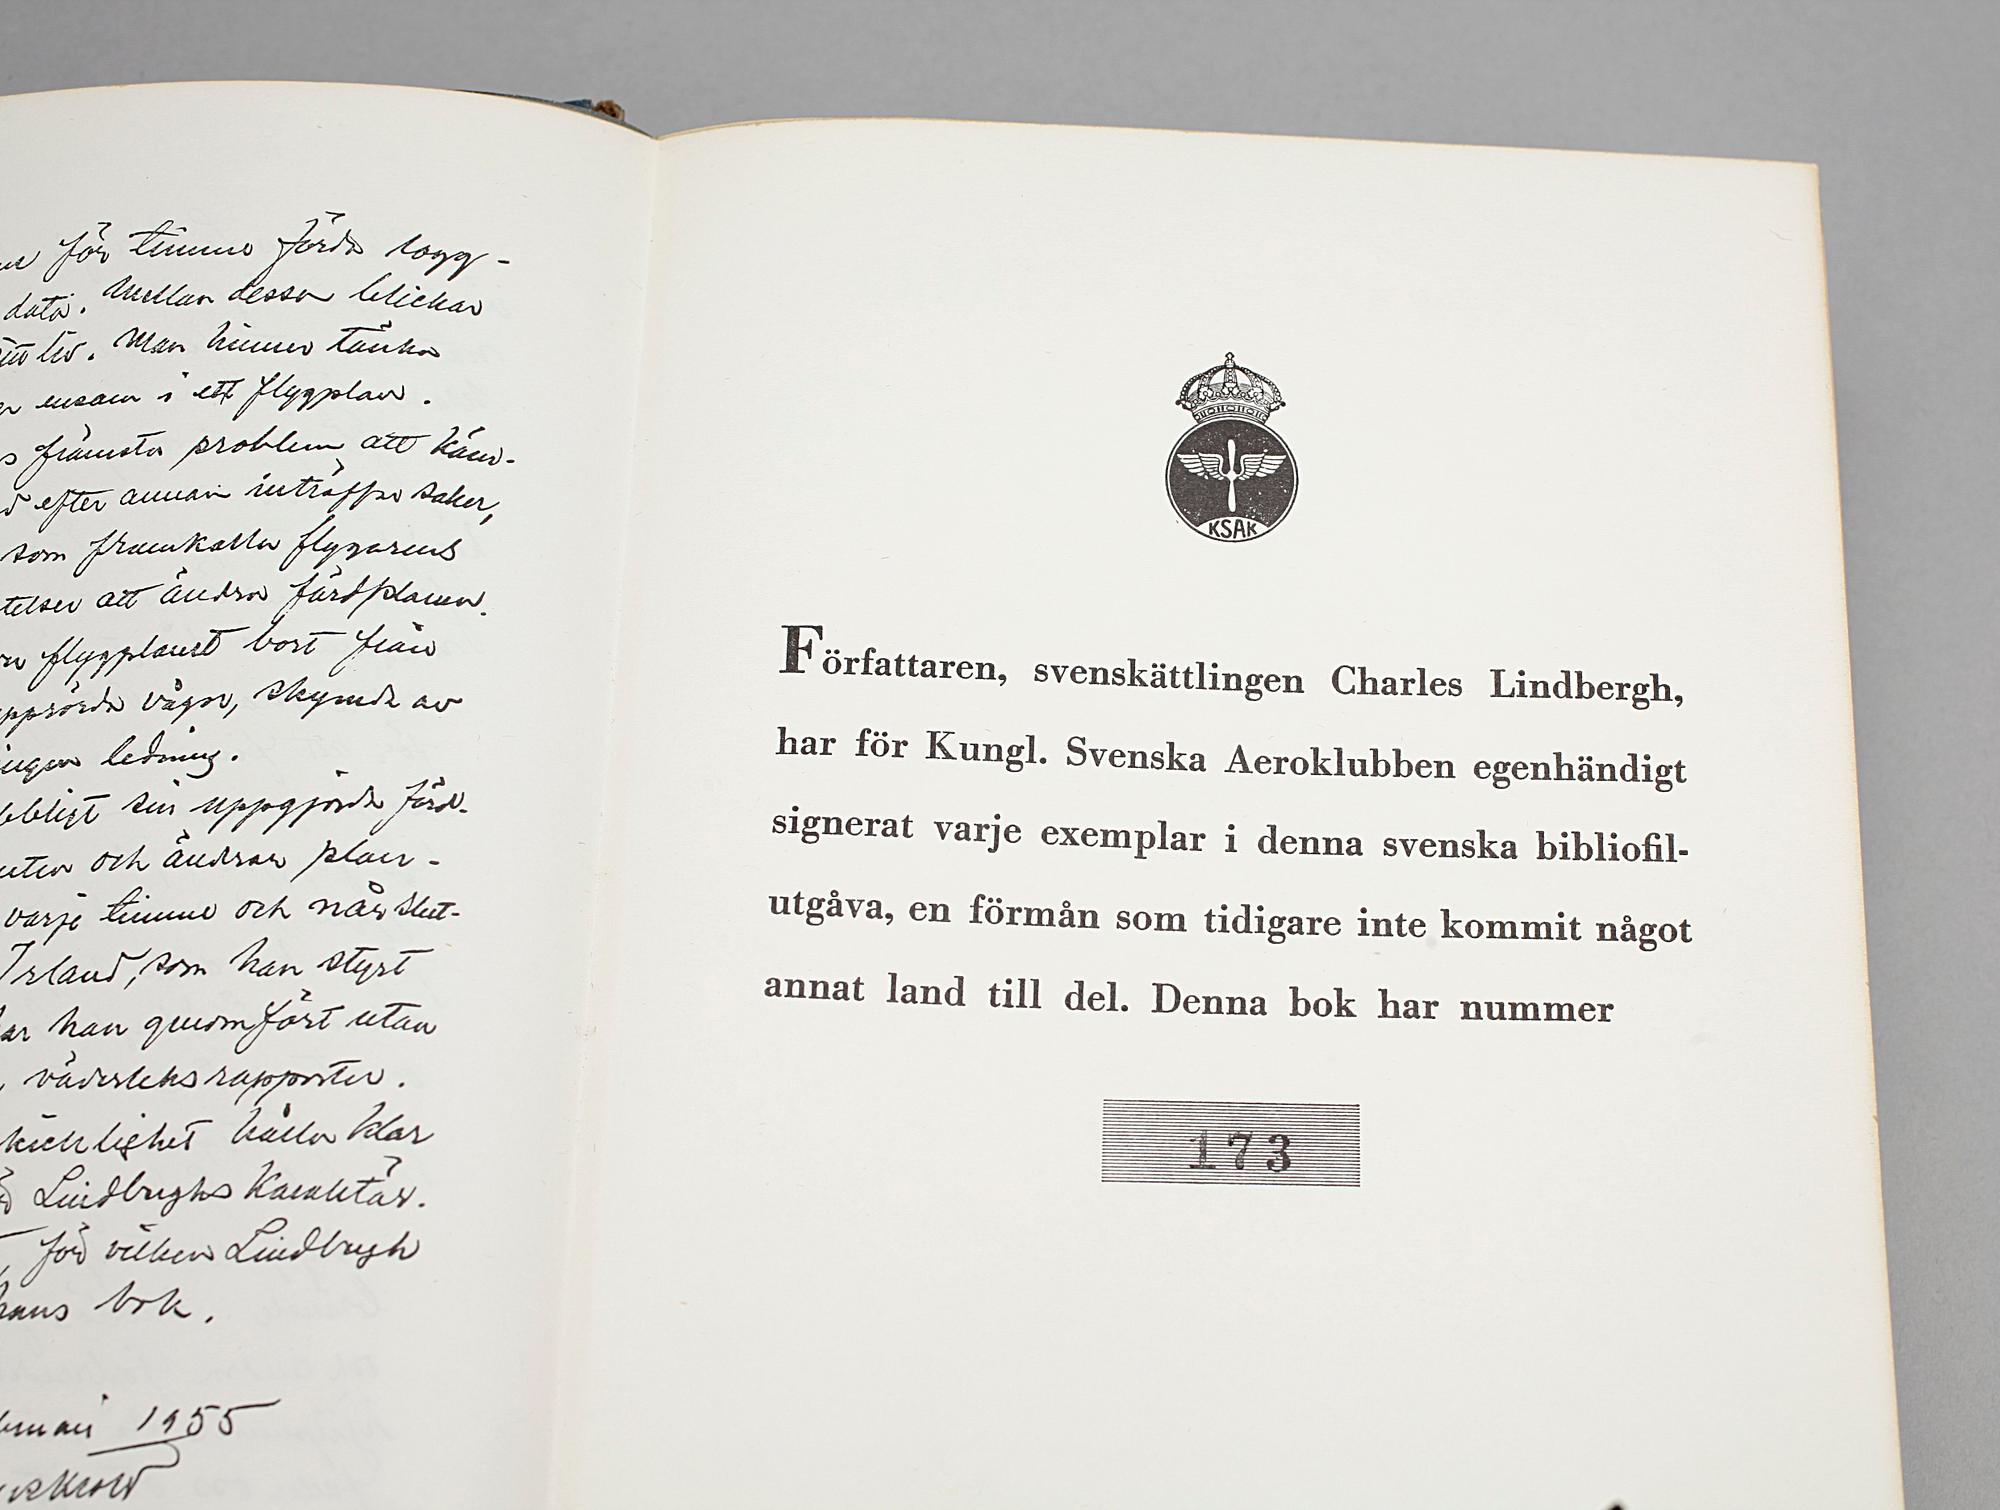 för timme förda logg-
data. Mellan dessa blickar
liv. Man hinner tänka
ensam i ett flygplan.
främsta problem att känn-
efter annan inträffa saker,
som framkalla flygarens
att ändra färdplanen.
flygplanet bort från
upprörda vågor, skymda av
ingen ledning.
sin uppgjorda färd-
och ändrar plan-
varje timme och når slut-
Irland, som han styrt
har han genomfört utan
väderleksrapporter.
hålla klar
Lindberghs karaktär.
för vilken Lindbergh
hans bok.
1955
KSAK
Författaren, svenskättlingen Charles Lindbergh,
har för Kungl. Svenska Aeroklubben egenhändigt
signerat varje exemplar i denna svenska bibliofil-
utgåva, en förmån som tidigare inte kommit något
annat land till del. Denna bok har nummer
173